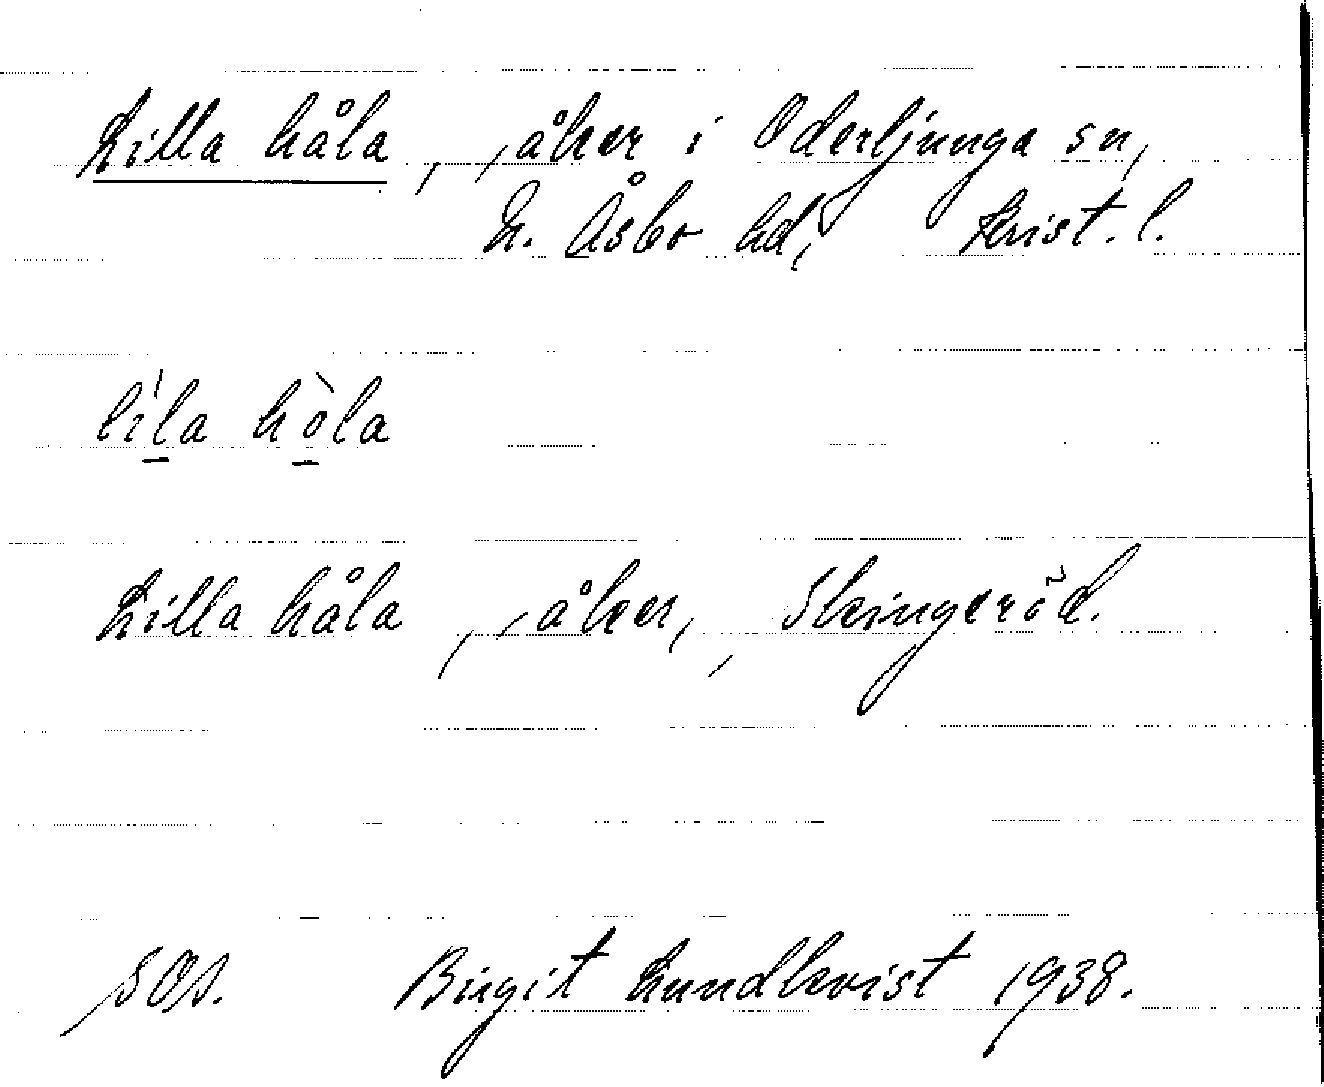 Lilla håla, åker i Oderljunga sn,
N. Åsbo hd, Krist. l.
líl̲a hòl̲a
Lilla håla, åker, Skingeröd.
SOS. Birgit Lundkvist 1938.